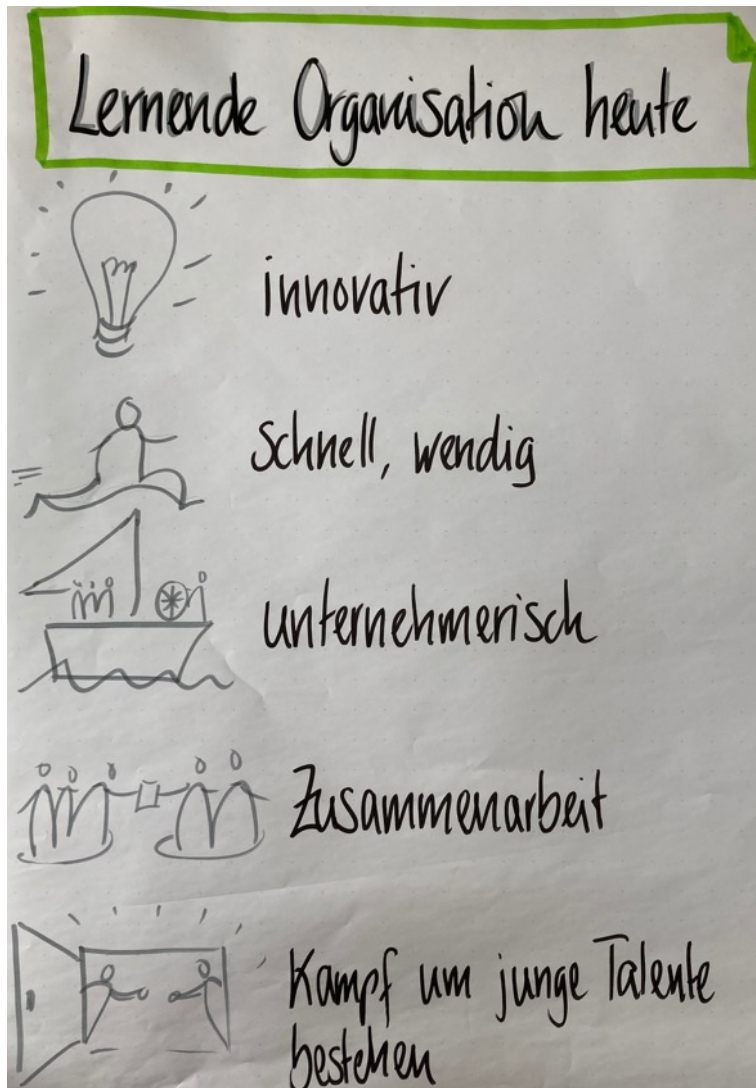 Lernende Organisation heute
innovativ
schnell, wendig
unternehmerisch
Zusammenarbeit
Kampf um junge Talente
bestehen